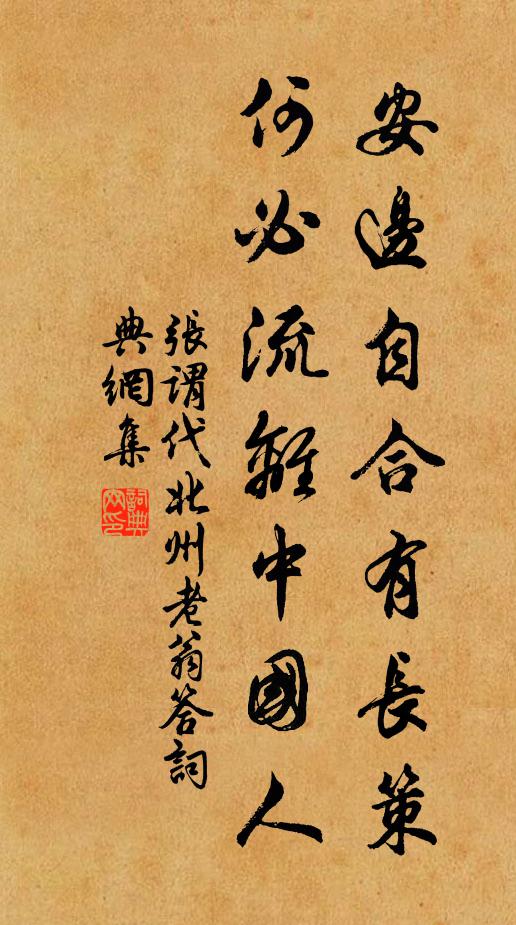 安邊自合有長策
何必流離中國人
張謂代北州老翁答詞
典網集
詞典網印